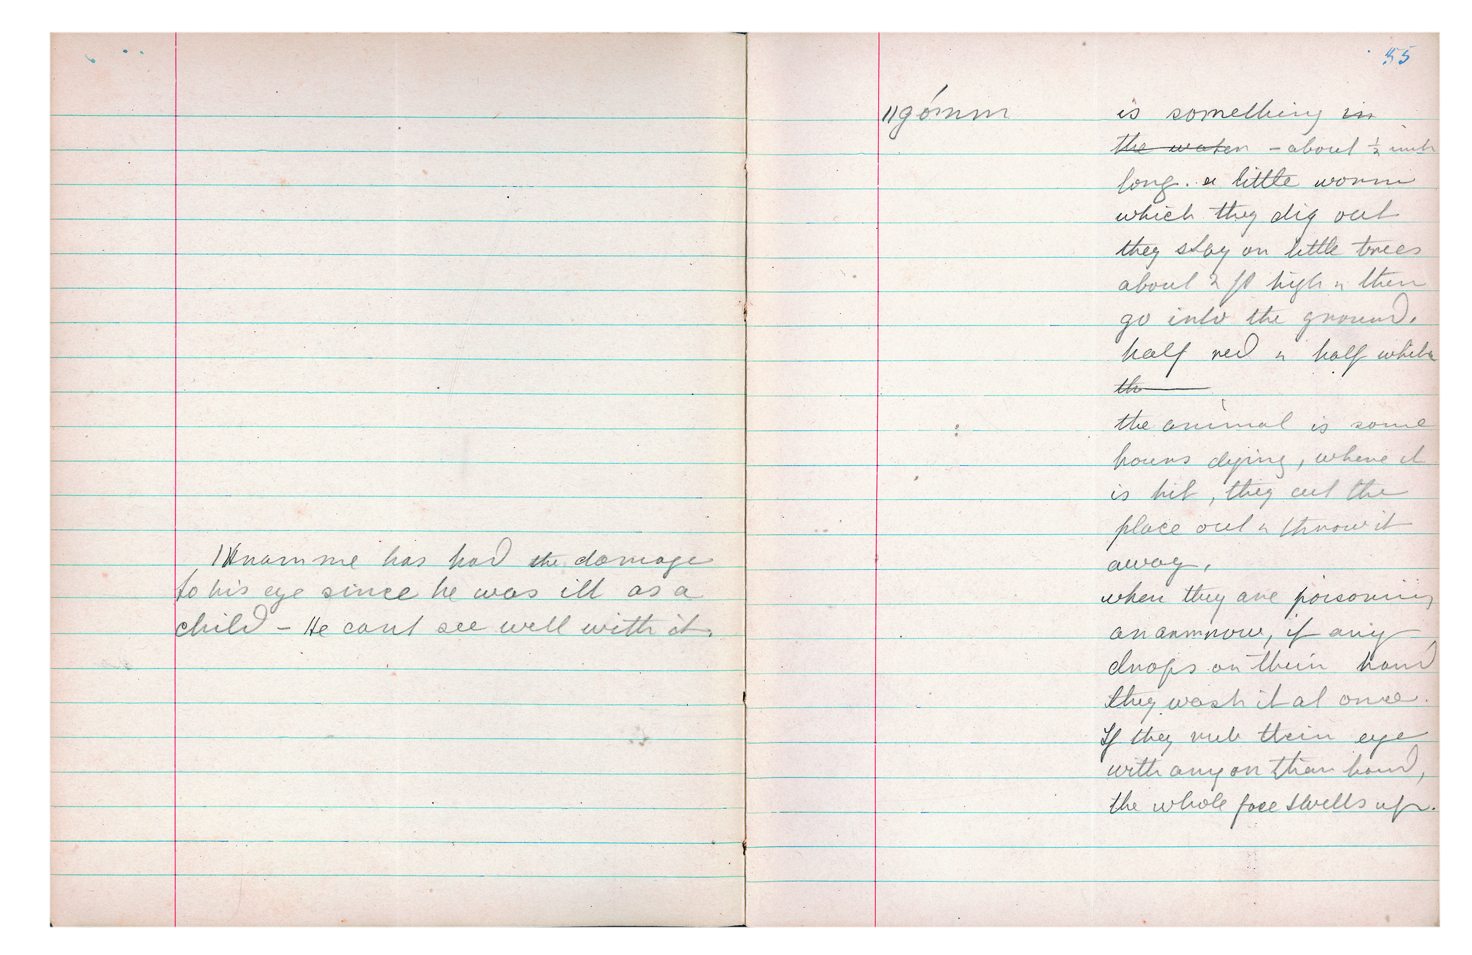 has had the damage
to his eye since he was ill as a
child - He cant see well with it.
55
||gómm is something in
the water - about ½ inch
long. a little worm
which they dig out
they stay on little trees
about 2 ft high & then
go into the ground.
half red & half white
th
the animal is some
hours dying, where it
is hit, they cut the
place out & throw it
away,
when they are poisoning
an arrow, if any
drops on their hand
they wash it at once.
If they rub their eye
with any on their hand,
the whole face swells up.